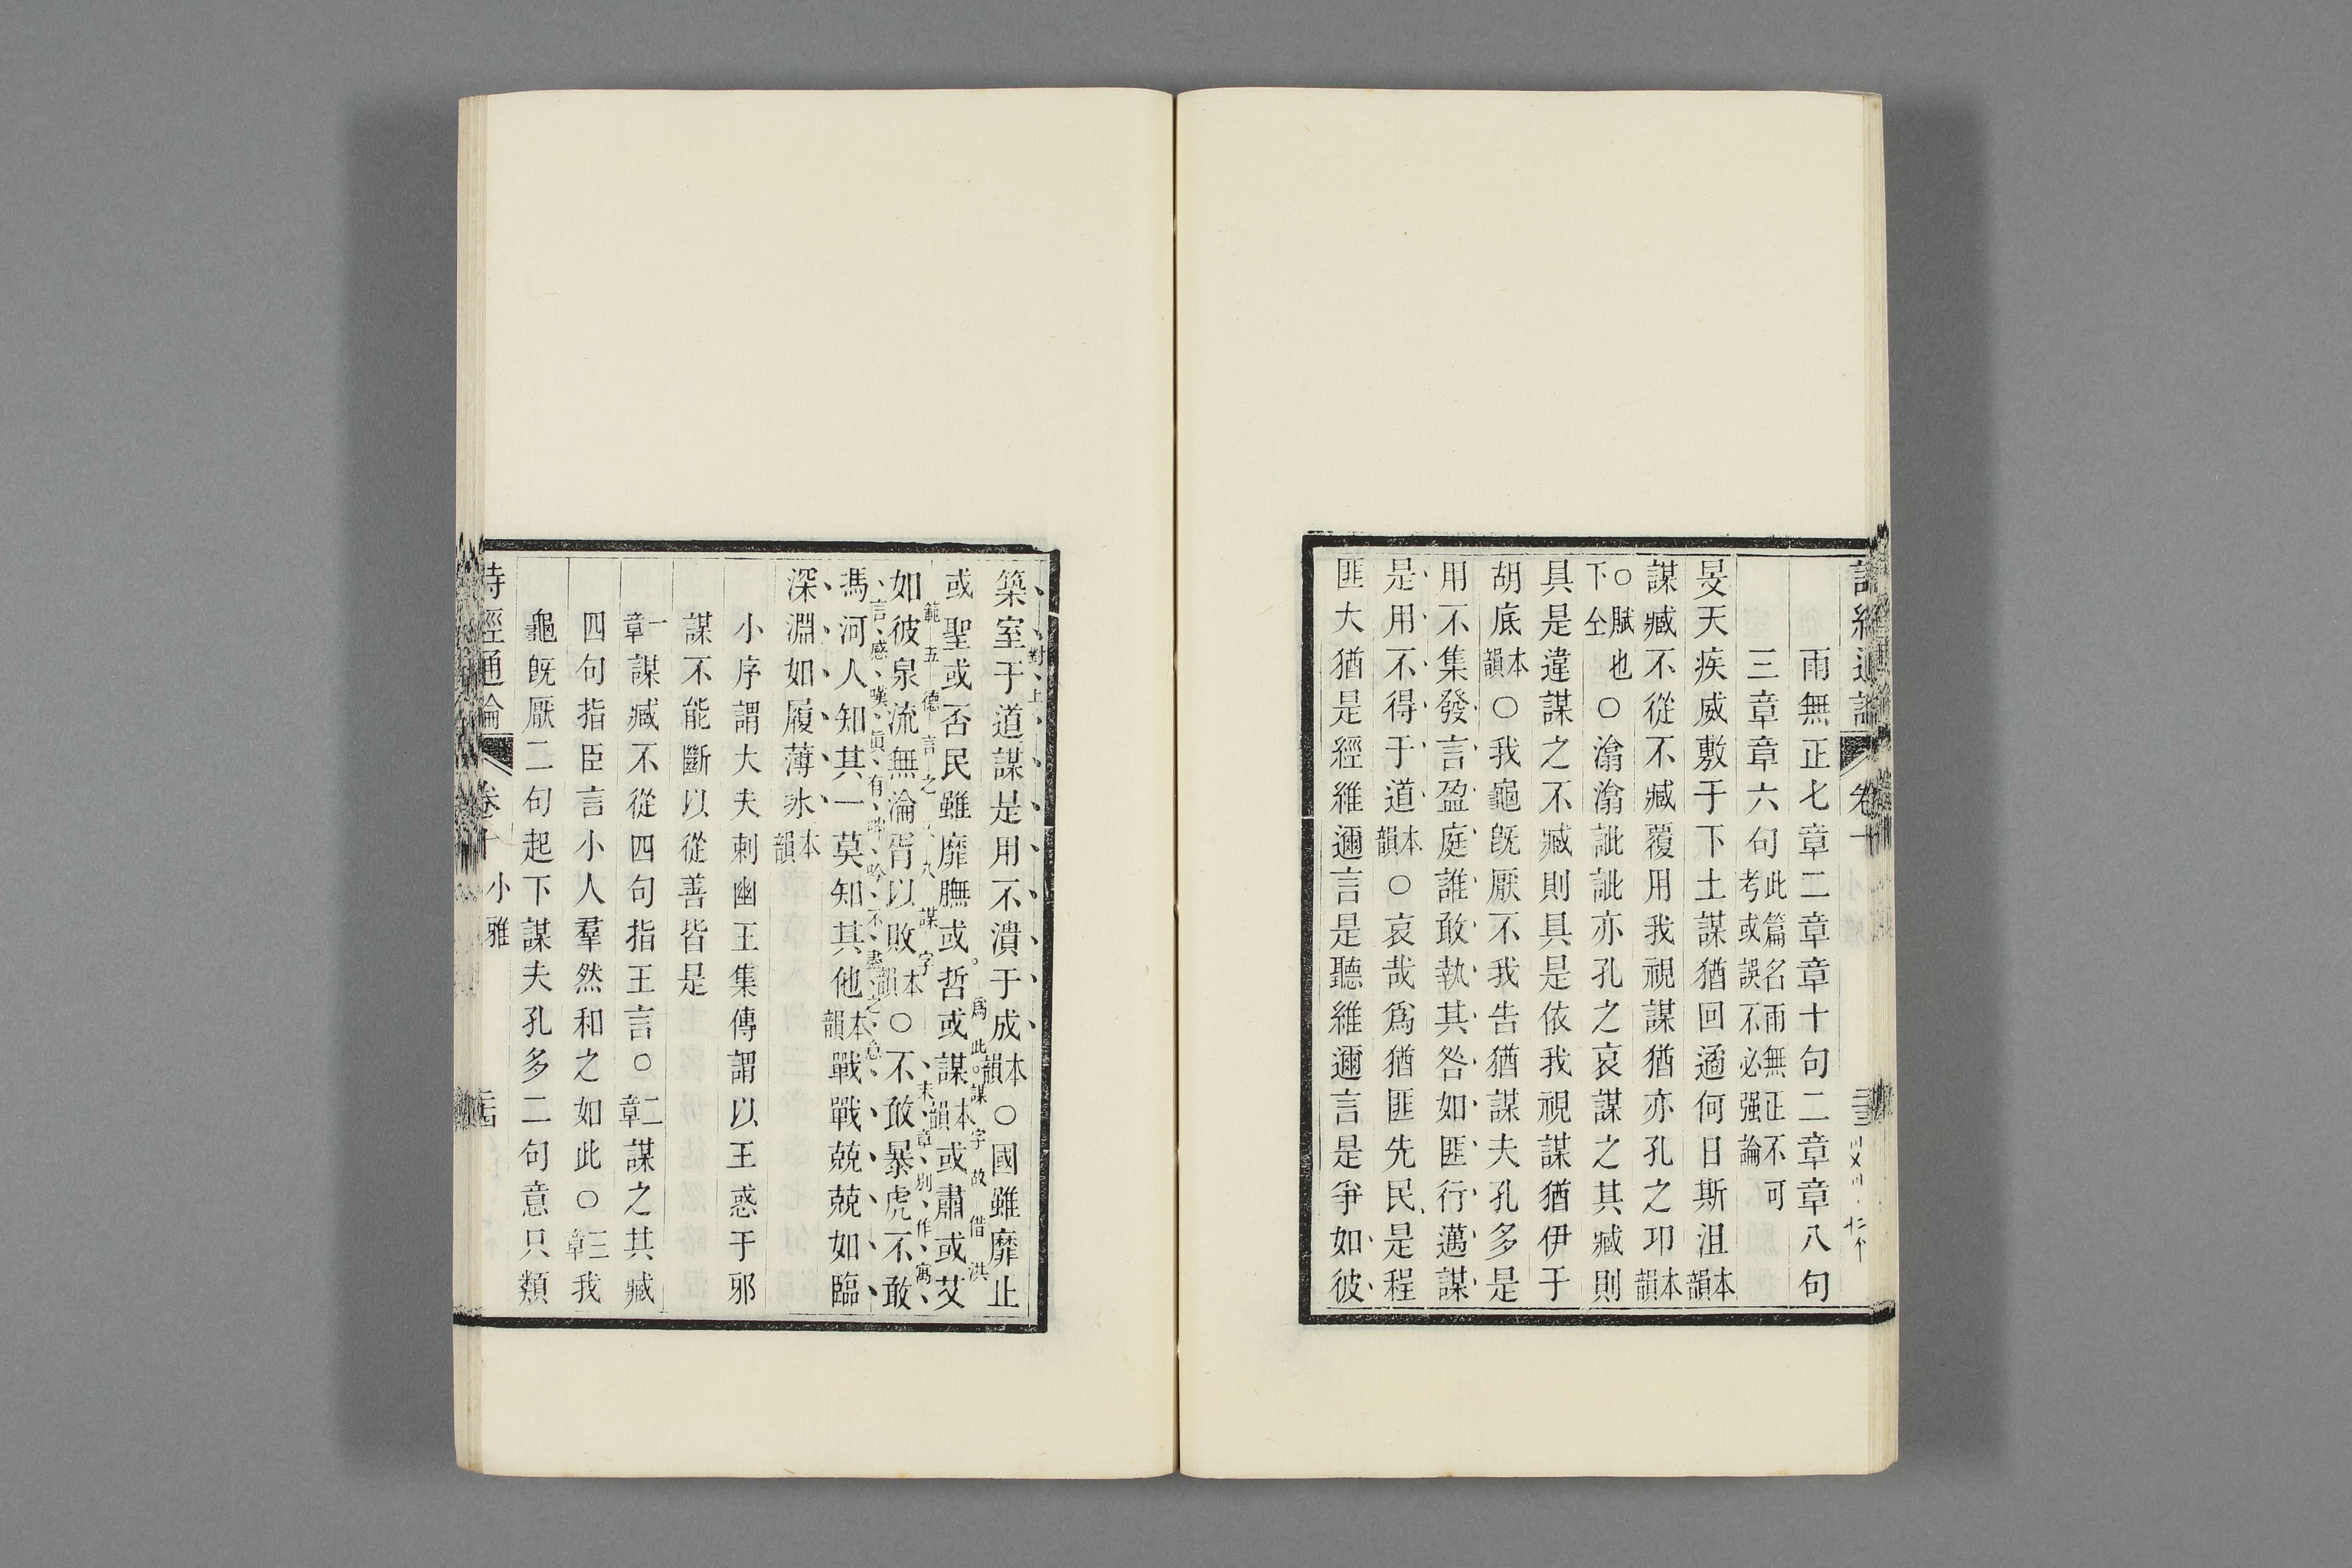 雨無正七章二章章十句二章章八句
三章章六句此篇名雨無正不可考或誤不必强論
旻天疾威敷于下土謀猶回遹何日斯沮本韻
謀臧不從不臧覆用我視謀猶亦孔之卭本韻
○賦也下仝○潝潝訿訿亦孔之哀謀之其臧則
具是違謀之不臧則具是依我視謀猶伊于
胡底本韻○我龜旣厭不我告猶謀夫孔多是
用不集發言盈庭誰敢執其咎如匪行邁謀
是用不得于道本韻○哀哉爲猶匪先民是程
匪大猶是經維邇言是聽維邇言是爭如彼
對上
築室于道謀是用不潰于成本韻○國雖靡止
爲此謀字故借洪
或聖或否民雖靡膴或哲或謀本韻或肅或艾
範五德言之謀字
末章別作寓
如彼泉流無淪胥以敗本韻○不敢暴虎不敢
言感嘆眞有吟不盡之意
馮河人知其一莫知其他本韻戰戰兢兢如臨
深淵如履薄冰本韻
小序謂大夫刺幽王集傳謂以王惑于邪
謀不能斷以從善皆是
一章謀臧不從四句指王言○二章謀之其臧
四句指臣言小人羣然和之如此○三章我
龜旣厭二句起下謀夫孔多二句意只類
詩經通論 卷十 小雅